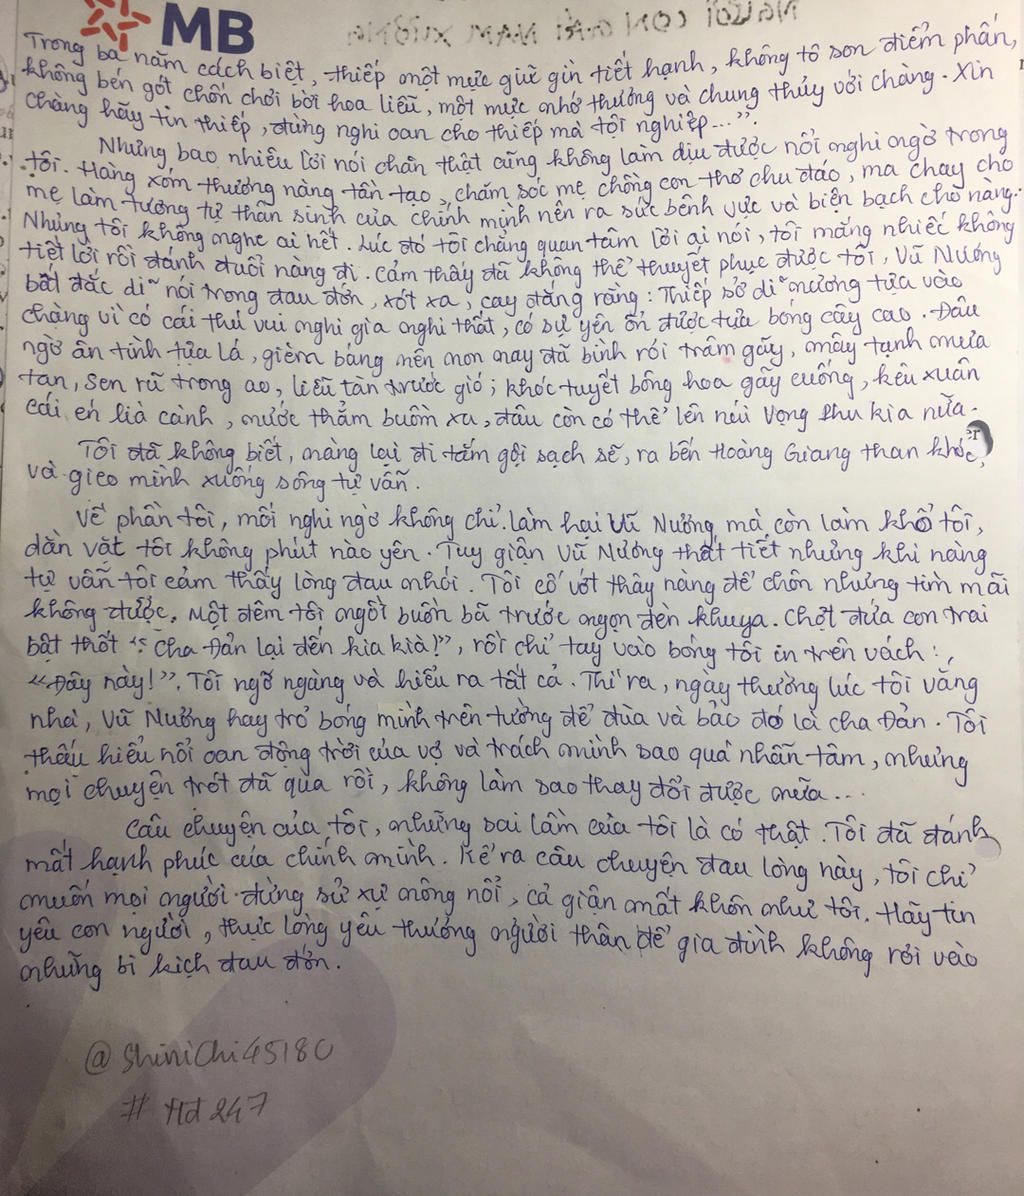 NGƯỜI CON GÁI NAM XƯƠNG
MB
Trong ba năm cách biệt, thiếp một mực giữ gìn tiết hạnh, không tô son điểm phấn,
không bén gót chốn chơi bời hoa liễu, một mực nhớ thương và chung thủy với chàng. Xin
chàng hãy tin thiếp, đừng nghi oan cho thiếp mà tội nghiệp...".
Nhưng bao nhiêu lời nói chân thật cũng không làm dịu được nỗi nghi ngờ trong
tôi. Hàng xóm thương nàng tần tạo, chăm sóc mẹ chồng con thơ chu đáo, ma chay cho
mẹ làm tương tự thân sinh của chính mình nên ra sức bênh vực và biện bạch cho nàng.
Nhưng tôi không nghe ai hết. Lúc đó tôi chẳng quan tâm lời ai nói, tôi mắng nhiếc không
tiết lời rồi đánh đuổi nàng đi. Cảm thấy đã không thể thuyết phục được tôi, Vũ Nương
bất đắc dĩ nói trong đau đớn, xót xa, cay đắng rằng: Thiếp sở dĩ nương tựa vào
chàng vì có cái thú vui nghi gia nghi thất, có sự yên ổn được tựa bóng cây cao. Đâu
ngờ ân tình tựa lá, gièm báng nên non nay đã bình rơi trâm gãy, mây tạnh mưa
tan, sen rũ trong ao, liễu tàn trước gió; khóc tuyết bông hoa gãy cuống, kêu xuân
cái én lìa cành, nước thẳm buồm xa, đâu còn có thể lên núi Vọng Phu kia nữa.
Tôi đã không biết, nàng lại đi tắm gội sạch sẽ, ra bến Hoàng Giang than khóc,
và gieo mình xuống sông tự vẫn.
Về phần tôi, mối nghi ngờ không chỉ làm hại Vũ Nương mà còn làm khổ tôi,
dằn vặt tôi không phút nào yên. Tuy giận Vũ Nương thất tiết nhưng khi nàng
tự vẫn tôi cảm thấy lòng đau nhói. Tôi cố vớt thây nàng để chôn nhưng tìm mãi
không được. Một đêm tôi ngồi buồn bã trước ngọn đèn khuya. Chợt đứa con trai
bật thốt "Cha Đản lại đến kia kìa!", rồi chỉ tay vào bóng tôi in trên vách:
"Đây này!". Tôi ngỡ ngàng và hiểu ra tất cả. Thì ra, ngày thường lúc tôi vắng
nhà, Vũ Nương hay trỏ bóng mình trên tường để đùa và bảo đó là cha Đản. Tôi
thấu hiểu nỗi oan động trời của vợ và trách mình sao quá nhẫn tâm, nhưng
mọi chuyện trót đã qua rồi, không làm sao thay đổi được nữa...
Câu chuyện của tôi, những sai lầm của tôi là có thật. Tôi đã đánh
mất hạnh phúc của chính mình. Kể ra câu chuyện đau lòng này, tôi chỉ
muốn mọi người đừng sử xự nông nổi, cả giận mất khôn như tôi. Hãy tin
yêu con người, thực lòng yêu thương người thân để gia đình không rơi vào
những bi kịch đau đớn.
@Shinichi45180
# Hd247